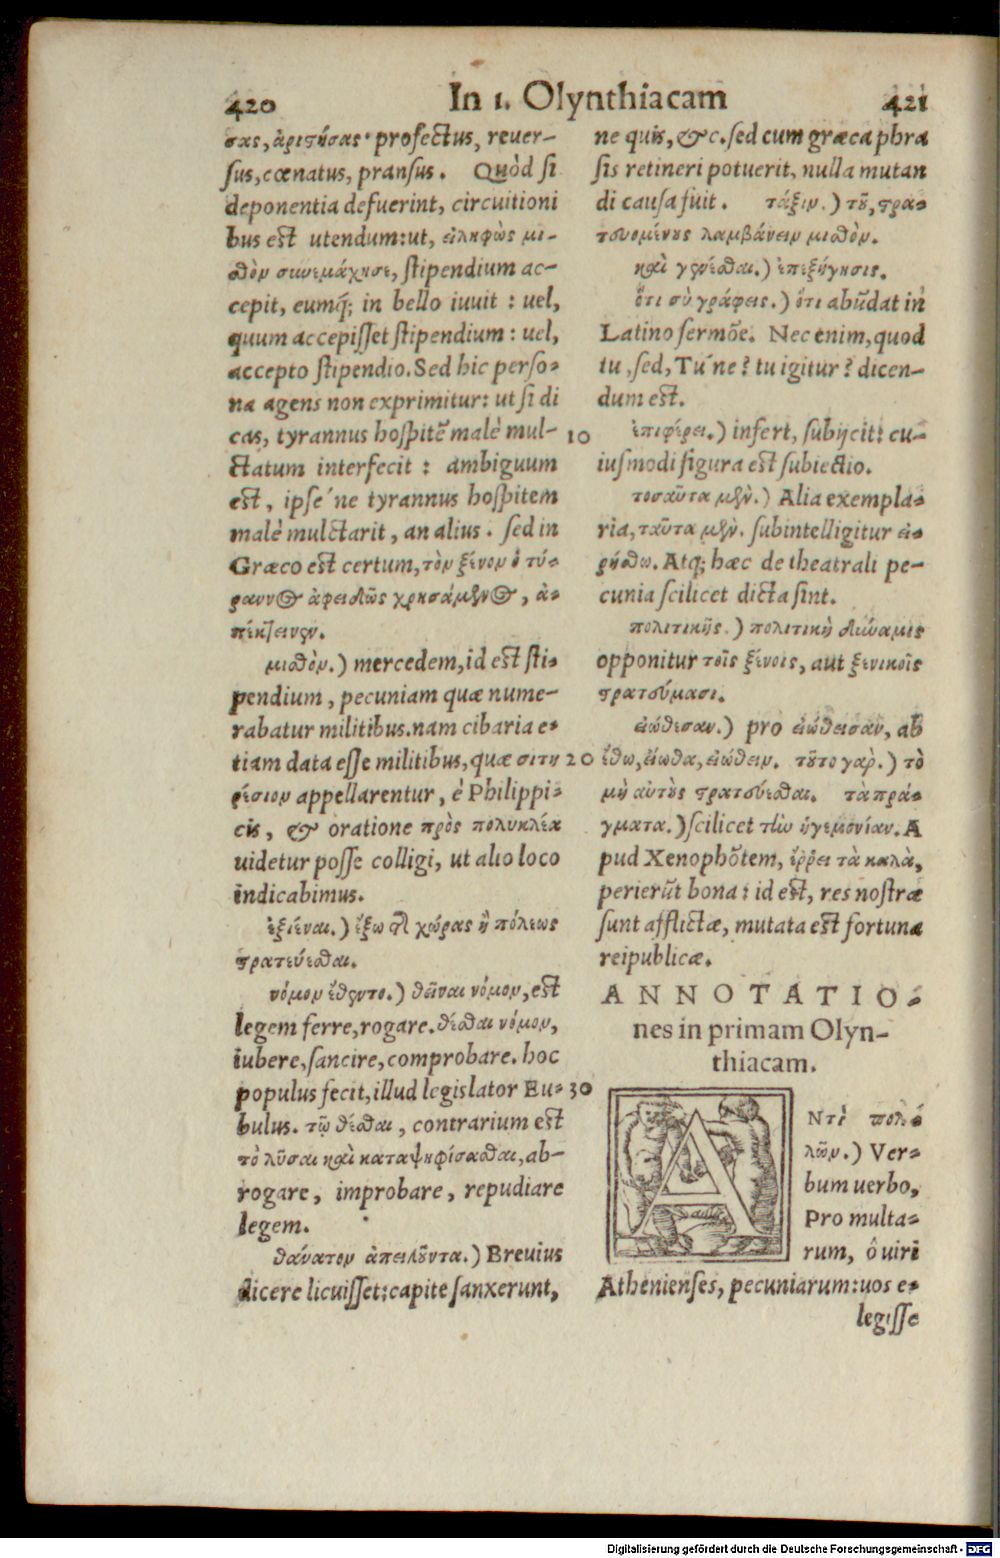 420 In 1. Olynthiacam 421
σας, ἀριστήσας· profectus, reuer-
sus, cœnatus, pransus. Quòd si
deponentia defuerint, circuitioni
bus est utendum: ut, εἰληφὼς μι-
σθὸν συνεμάχησε, stipendium ac-
cepit, eumq́; in bello iuuit : uel,
quum accepisset stipendium : uel,
accepto stipendio. Sed hic perso-
na agens non exprimitur: ut si di
cas, tyrannus hospitē malè mul-
ctatum interfecit : ambiguum
est, ipse´ne tyrannus hospitem
malè mulctarit, an alius. sed in
Græco est certum, τὸν ξένον ὁ τύ-
ραννος ἀφειδῶς χρησάμενος, ἀ-
πέκτεινεν.
μισθὸν.) mercedem, id est sti-
pendium, pecuniam quæ nume-
rabatur militibus. nam cibaria e-
tiam data esse militibus, quæ σιτη
ρέσιον appellarentur, è Philippi-
cis, & oratione πρὸς πολυκλέα
uidetur posse colligi, ut alio loco
indicabimus.
ἐξιέναι.) ἔξω τῆς χώρας ἢ πόλεως
στρατεύεσθαι.
νόμον ἔθεντο.) θεῖναι νόμον, est
legem ferre, rogare. θέσθαι νόμον,
iubere, sancire, comprobare. hoc
populus fecit, illud legislator Eu-
bulus. τῷ θέσθαι, contrarium est
τὸ λῦσαι καὶ καταψηφίσασθαι, ab-
rogare, improbare, repudiare
legem.
θάνατον ἀπειλοῦντα.) Breuius
dicere licuisset: capite sanxerunt,
10
20
30
ne quis, &c. sed cum græca phra
sis retineri potuerit, nulla mutan
di causa fuit. τάξιν.) τοῦ, στρα-
τευομένους λαμβάνειν μισθὸν.
καὶ γενέσθαι.) ἐπεξήγησις.
ὅτι σὺ γράφεις.) ὅτι abūdat in
Latino sermōe. Nec enim, quod
tu, sed, Tú ne? tu igitur? dicen-
dum est.
ἐπιφέρει.) infert, subijcit: cu-
iusmodi figura est subiectio.
τοσαῦτα μὲν.) Alia exempla-
ria, ταῦτα μὲν. subintelligitur εἰ-
ρήσθω. Atq; hæc de theatrali pe-
cunia scilicet dicta sint.
πολιτικῆς.) πολιτικὴ δύναμις
opponitur τοῖς ξένοις, aut ξενικοῖς
στρατεύμασι.
εἰώθεσαν.) pro εἰώθεισαν, ab
ἔθω, εἴωθα, εἰώθειν. τοῦτο γὰρ.) τὸ
μὴ αὐτοὺς στρατεύεσθαι. τὰ πρά-
γματα.) scilicet τὴν ἡγεμονίαν. A
pud Xenophōtem, ἔῤῥει τὰ καλὰ,
perierūt bona : id est, res nostræ
sunt afflictæ, mutata est fortuna
reipublicæ.
ANNOTATIO-
nes in primam Olyn-
thiacam.
ΑΝτὶ πολλῶν.) Ver-
bum uerbo,
Pro multa-
rum, ô uiri
Athenienses, pecuniarum: uos e-
legisse
Digitalisierung gefördert durch die Deutsche Forschungsgemeinschaft - DFG